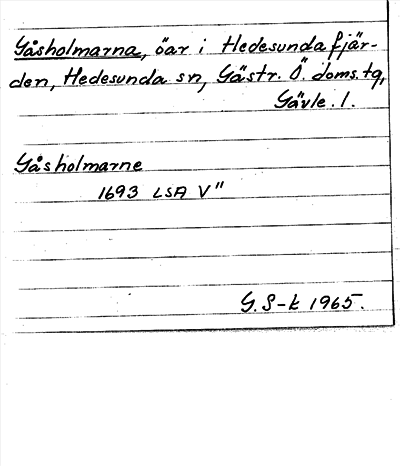 Gåsholmarna, öar i Hedesundafjär-
den, Hedesunda sn, Gästr. Ö. doms. tg,
Gävle. l.
Gåsholmarne
1693 LSA V"
G. S-k 1965.